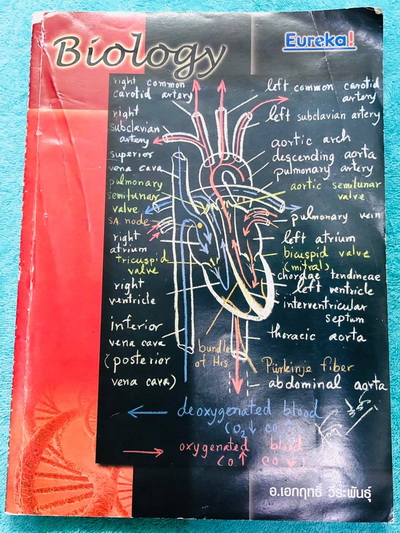 Biology
Eureka!
right common
carotid artery
left common carotid
artery
right
subclavian
artery
left subclavian artery
aortic arch
descending aorta
pulmonary artery
superior
vena cava
pulmonary
semilunar
valve
aortic semilunar
valve
SA node
pulmonary vein
right
atrium
left atrium
tricuspid
valve
bicuspid valve
(mitral)
chordae tendineae
right
ventricle
left ventricle
interventricular
septum
inferior
vena cava
(posterior
vena cava)
thoracic aorta
bundle
of His
Purkinje fiber
abdominal aorta
deoxygenated blood
(O₂↓ CO
oxygenated blood
อ.เอกฤทธิ์ วีระพันธุ์